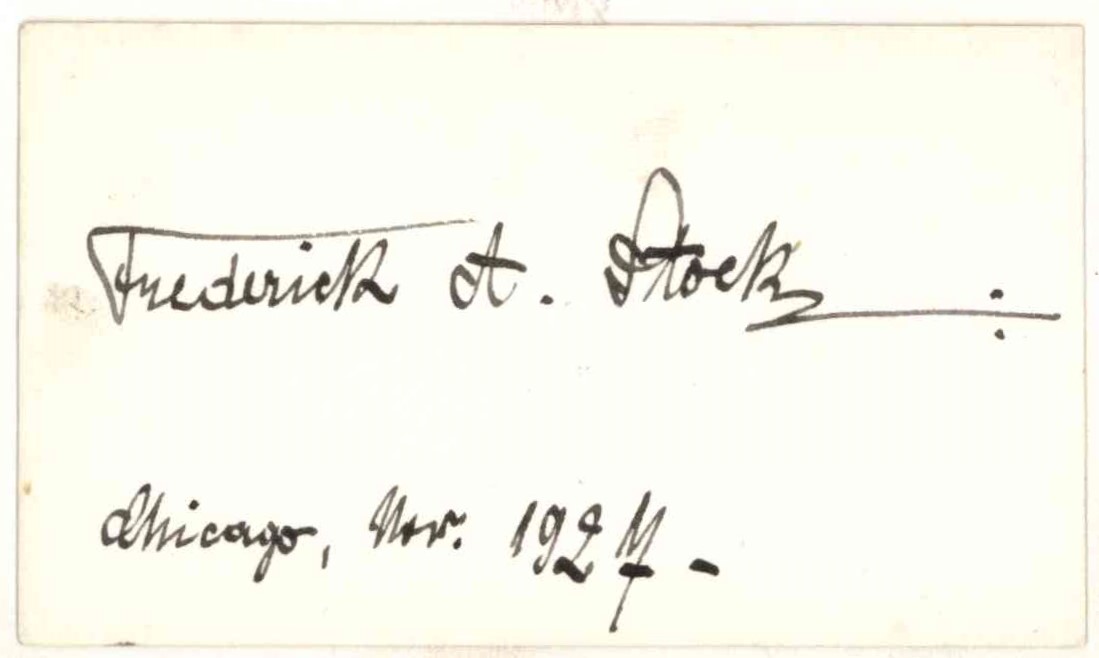 Frederick A. Stock
Chicago, Nov. 1927 -